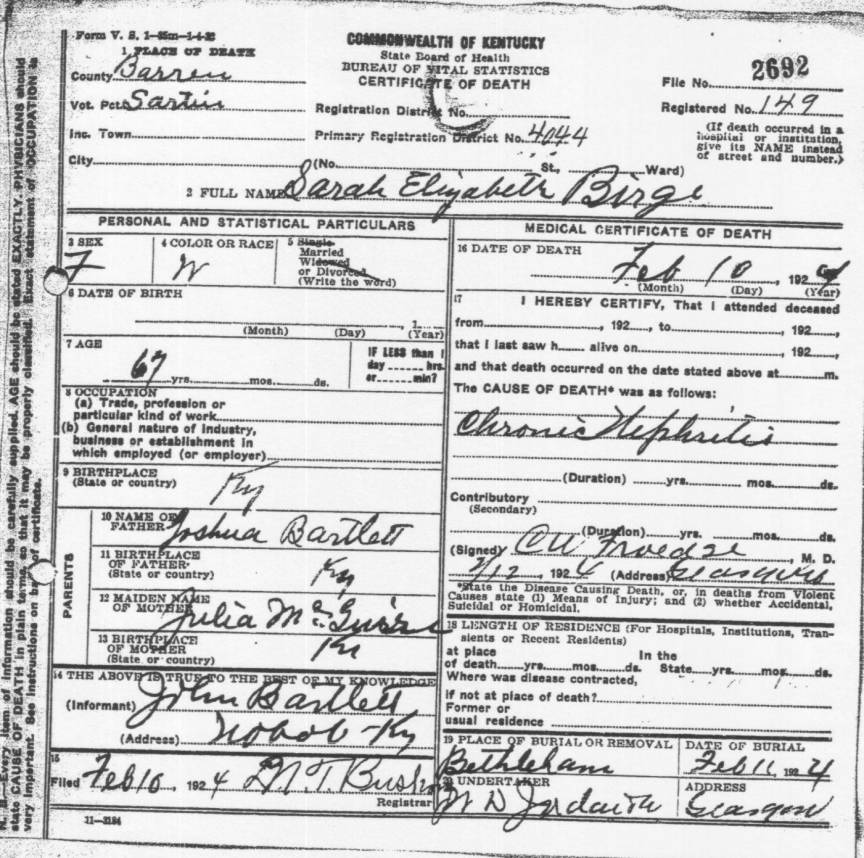 Form V. S. 1-85m-1-4-23
1 PLACE OF DEATH
County Barren
Vot. Pct. Sartin
Inc. Town
City
COMMONWEALTH OF KENTUCKY
State Board of Health
BUREAU OF VITAL STATISTICS
CERTIFICATE OF DEATH
Registration District No.
Primary Registration District No. 4044
(No. St., Ward)
File No. 2692
Registered No. 149
(If death occurred in a
hospital or institution,
give its NAME instead
of street and number.)
2 FULL NAME Sarah Elizabeth Birge
PERSONAL AND STATISTICAL PARTICULARS
3 SEX
F
4 COLOR OR RACE
W
5 Single
Married
Widowed
or Divorced
(Write the word)
6 DATE OF BIRTH
1
(Month) (Day) (Year)
7 AGE
67 yrs. mos. ds.
IF LESS than 1
day hrs.
or min?
8 OCCUPATION
(a) Trade, profession or
particular kind of work
(b) General nature of industry,
business or establishment in
which employed (or employer)
9 BIRTHPLACE
(State or country)
Ky
PARENTS
10 NAME OF
FATHER Joshua Bartlett
11 BIRTHPLACE
OF FATHER
(State or country) Ky
12 MAIDEN NAME
OF MOTHER Julia McGuire
13 BIRTHPLACE
OF MOTHER
(State or country) Ky
14 THE ABOVE IS TRUE TO THE BEST OF MY KNOWLEDGE
(Informant) John Bartlett
(Address) Nobob Ky
15
Filed Feb 10 1924 M.T. Bush
Registrar
11-3184
MEDICAL CERTIFICATE OF DEATH
16 DATE OF DEATH
Feb 10, 1924
(Month) (Day) (Year)
17 I HEREBY CERTIFY, That I attended deceased
from , 192 , to , 192 ,
that I last saw h alive on , 192 ,
and that death occurred on the date stated above at m.
The CAUSE OF DEATH* was as follows:
Chronic Nephritis
(Duration) yrs. mos. ds.
Contributory
(Secondary)
(Duration) yrs. mos. ds.
(Signed) CW Froedge, M. D.
2/12, 1924 (Address) Glasgow
*State the Disease Causing Death, or, in deaths from Violent
Causes state (1) Means of Injury; and (2) whether Accidental,
Suicidal or Homicidal.
18 LENGTH OF RESIDENCE (For Hospitals, Institutions, Tran-
sients or Recent Residents)
at place In the
of death yrs. mos. ds. State yrs. mos. ds.
Where was disease contracted,
if not at place of death?
Former or
usual residence
19 PLACE OF BURIAL OR REMOVAL
Bethleham
DATE OF BURIAL
Feb 11, 1924
20 UNDERTAKER
W D
ADDRESS
Glasgow
N. B.—Every item of information should be carefully supplied. AGE should be stated EXACTLY. PHYSICIANS should
state CAUSE OF DEATH in plain terms, so that it may be properly classified. Exact statement of OCCUPATION is
very important. See instructions on back of certificate.